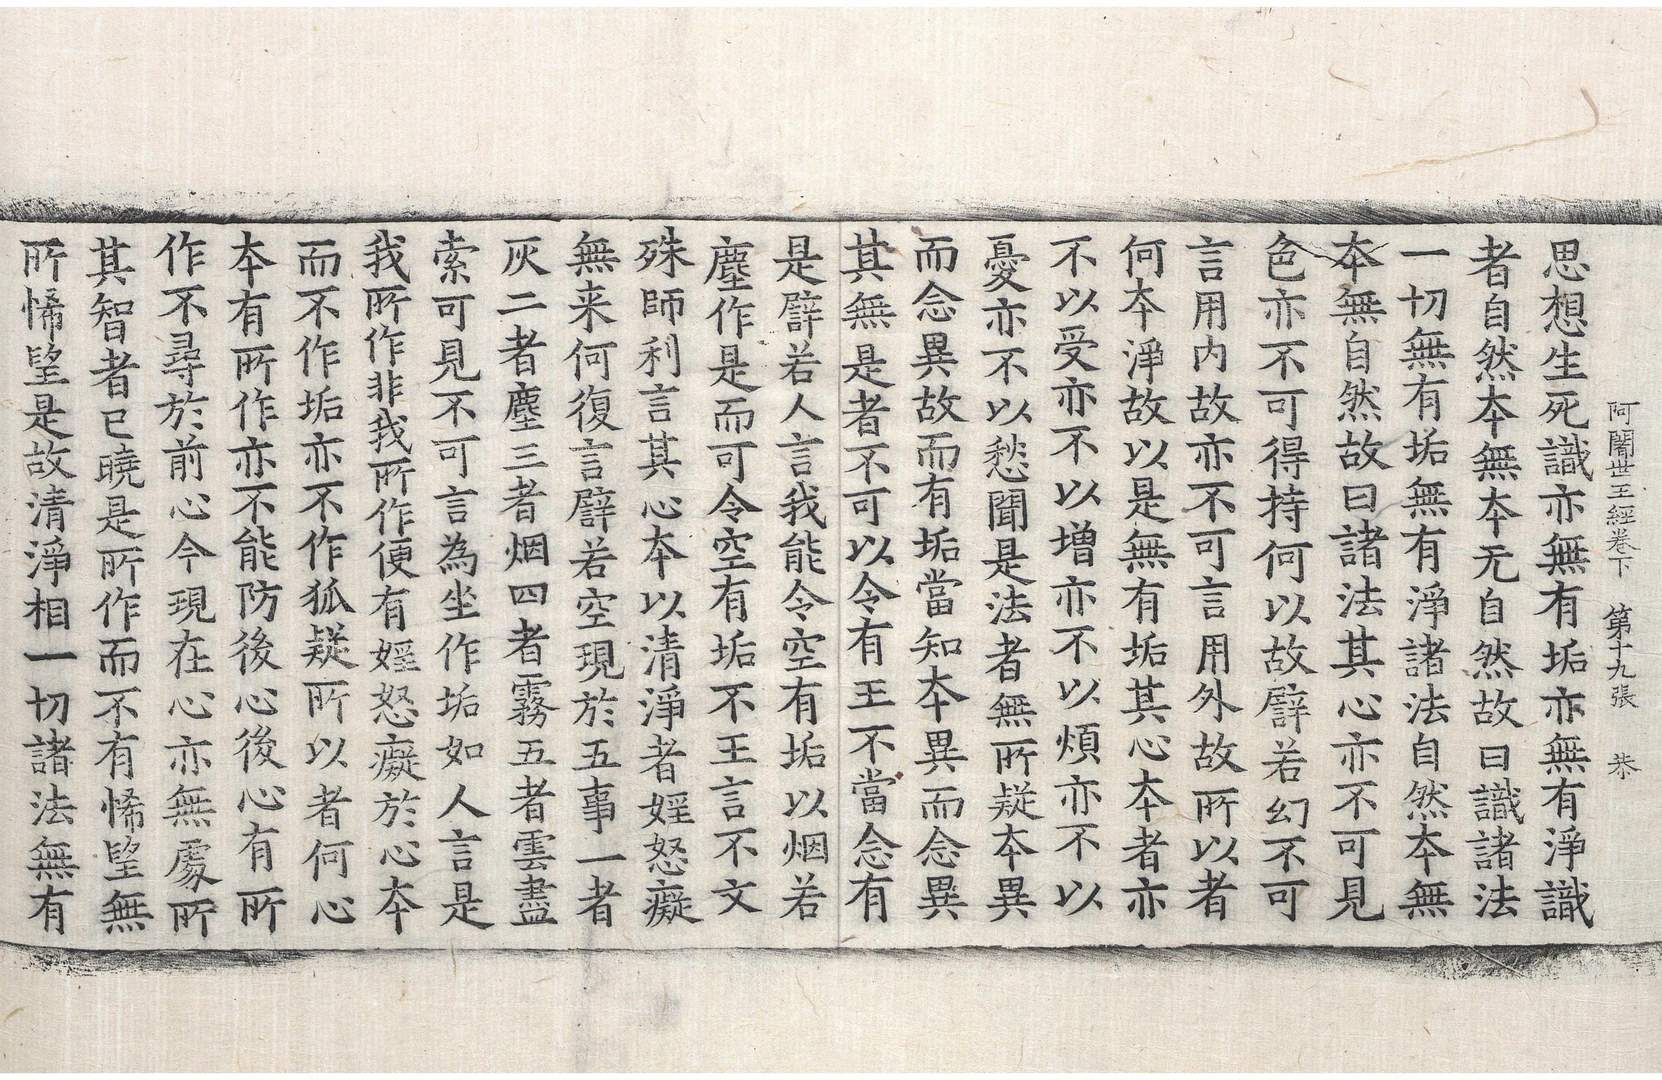 阿闍世王經卷下 第十九張 㳟
思想生死識亦無有垢亦無有淨識
者自然本無本无自然故曰識諸法
一切無有垢無有淨諸法自然本無
本無自然故曰諸法其心亦不可見
色亦不可得持何以故譬若幻不可
言用内故亦不可言用外故所以者
何本淨故以是無有垢其心本者亦
不以受亦不以增亦不以煩亦不以
憂亦不以愁聞是法者無所疑本異
而念異故而有垢當知本異而念異
其無是者不可以令有王不當念有
是譬若人言我能令空有垢以烟若
塵作是而可令空有垢不王言不文
殊師利言其心本以清淨者婬怒癡
無来何復言譬若空現於五事一者
灰二者塵三者烟四者霧五者雲盡
索可見不可言為坐作垢如人言是
我所作非我所作便有婬怒癡於心本
而不作垢亦不作狐疑所以者何心
本有所作亦不能防後心後心有所
作不尋於前心今現在心亦無處所
其智者已曉是所作而不有悕望無
所悕望是故清淨相一切諸法無有